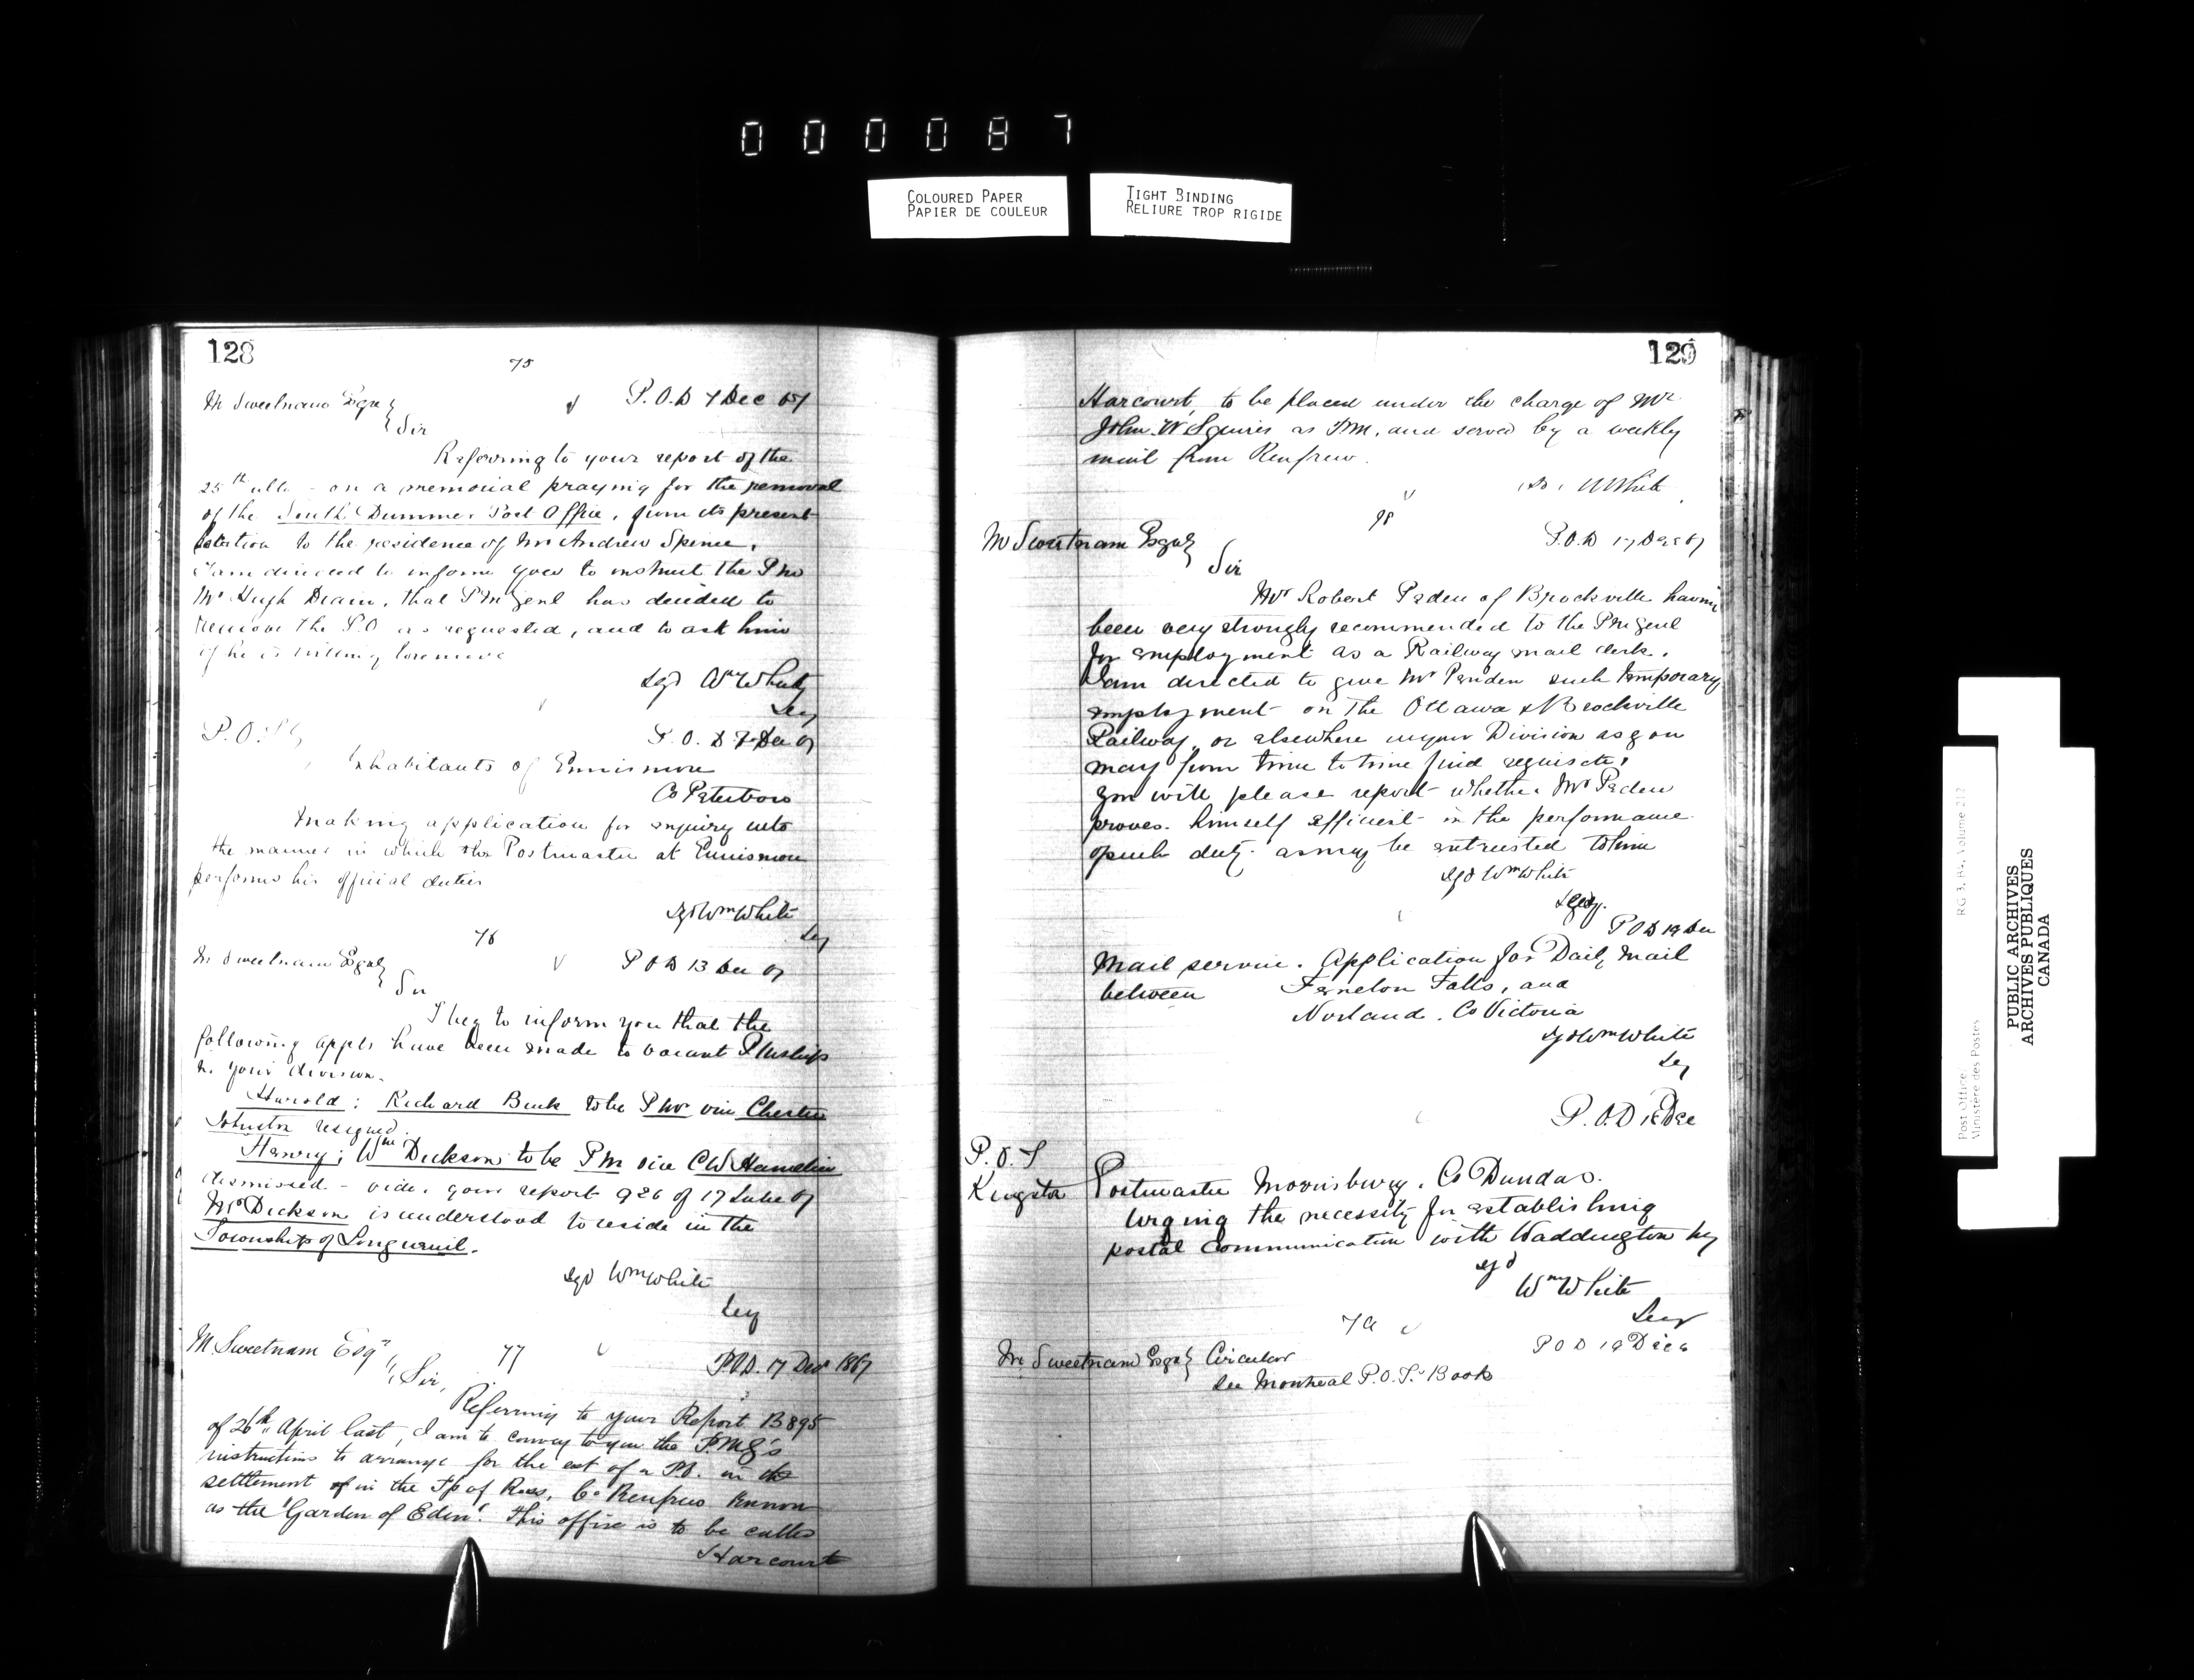 000087
COLOURED PAPER
PAPIER DE COULEUR
TIGHT BINDING
RELIURE TROP RIGIDE
128
75
M Sweetnam Esqre
P.O.D 7 Dec 67
Sir
Referring to your report of the
25th ulto - on a memorial praying for the removal
of the South Dummer Post Office, from its present
to the residence of Mr Andrew Spence,
I am directed to inform you to instruct the PM
Mr Hugh Drain, that PMGenl has decided to
remove the P.O as requested, and to ask him
if he is willing to remove
sgd Wm White
Secy
P.O.
P.O.D 7 Dec 67
Inhabitants of Ennismore
Co Peterboro
making application for enquiry into
the manner in which the Postmaster at Ennismore
performs his official duties
sgd Wm White
Secy
76
M Sweetnam Esqre
P O D 13 Dec 67
Sir
I beg to inform you that the
following appts have been made to vacant PMships
in your division.
Harold; Richard Buck to be PMr vice Chester
Johnston resigned.
Henry; Wm Dickson to be PM vice CW Hamelin
dismissed - vide. your report 926 of 17 June 67
Mr Dickson is understood to reside in the
Township of Longueuil.
sgd Wm White
Secy
M. Sweetnam Esqr
77
P.O.D. 17 Decr 1867
Sir,
Referring to your Report B895
of 26th April last, I am to convey to you the P.M.G's
instructions to arrange for the est of a P.O. in the
settlement of in the Tp of Ross, Co Renfrew known
as the "Garden of Eden". This office is to be called
Harcourt
129
Harcourt, to be placed under the charge of Mr
John W Squires as P.M. and served by a weekly
mail from Renfrew.
W White
78
M Sweetnam Esqre
P.O.D 17 Dec 67
Sir
Mr Robert Paden of Brockville having
been very strongly recommended to the PMGenl
for employment as a Railway mail clerk.
I am directed to give Mr Paden such temporary
employment on the Ottawa & Brockville
Railway, or elsewhere in your Division as you
may from time to time find requisite,
You will please report whether Mr Paden
proves himself efficient in the performance
of such duty as may be entrusted to him
sgd Wm White
Secy.
P O D 19 Dec
Mail service. Application for Daily Mail
between Fenelon Falls, and
Norland. Co Victoria
sgd Wm White
Secy
P.O.D 18 Dec
P.O.I
Kingston
Postmaster Morrisburg. Co Dundas.
Urging the necessity for establishing
postal communication with Waddington NY
sgd
Wm White
Secy
79
P O D 19 Dec 6
M Sweetnam Esqre Circular
See Montreal P.O.I. Book
Post Office
Ministère des Postes
RG 3, Volume 212
PUBLIC ARCHIVES
ARCHIVES PUBLIQUES
CANADA